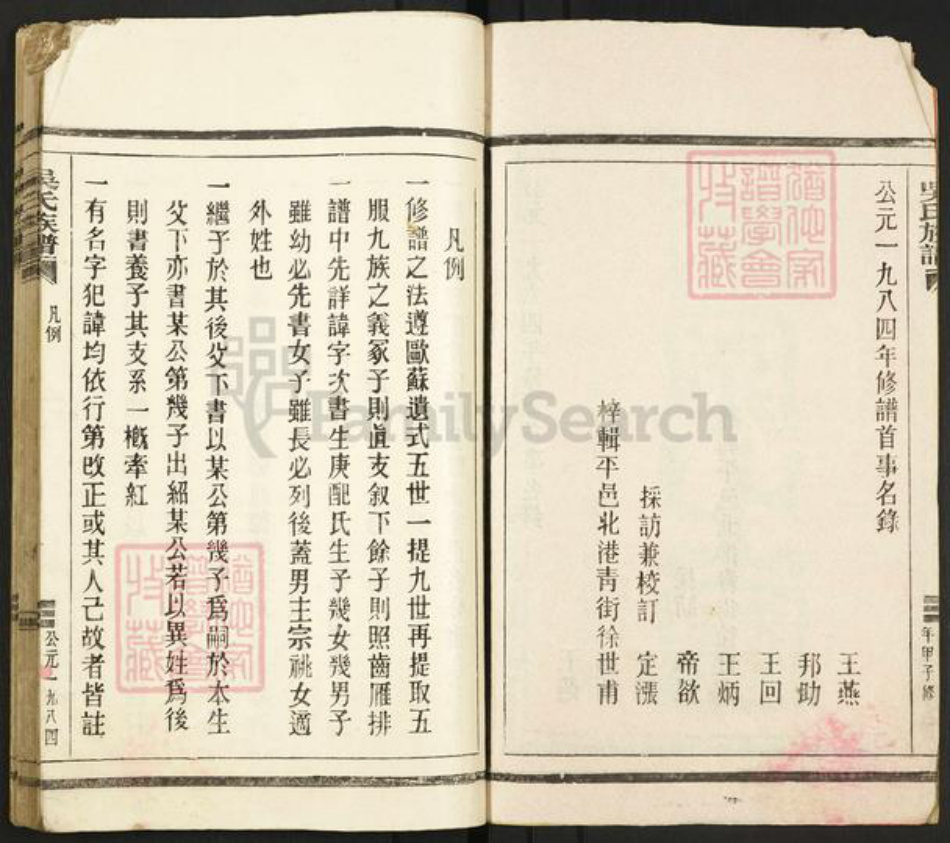 吳氏族譜
公元一九八四年修譜首事名錄
王燕
邦勛
王回
王炳
帝欲
採訪兼校訂 定漲
梓輯平邑北港青街徐世甫
年甲子修
猶他家譜學會收藏
凡例
一修譜之法遵歐蘇遺式五世一提九世再提取五
服九族之義冢子則直支叙下餘子則照齒雁排
一譜中先詳諱字次書生庚配氏生子幾女幾男子
雖幼必先書女子雖長必列後蓋男主宗祧女適
外姓也
一繼子於其後父下書以某公第幾子爲嗣於本生
父下亦書某公第幾子出紹某公若以異姓爲後
則書養子其支系一概牽紅
一有名字犯諱均依行第改正或其人己故者皆註
吳氏族譜
凡例
公元一九八四
猶他家譜學會收藏
FamilySearch